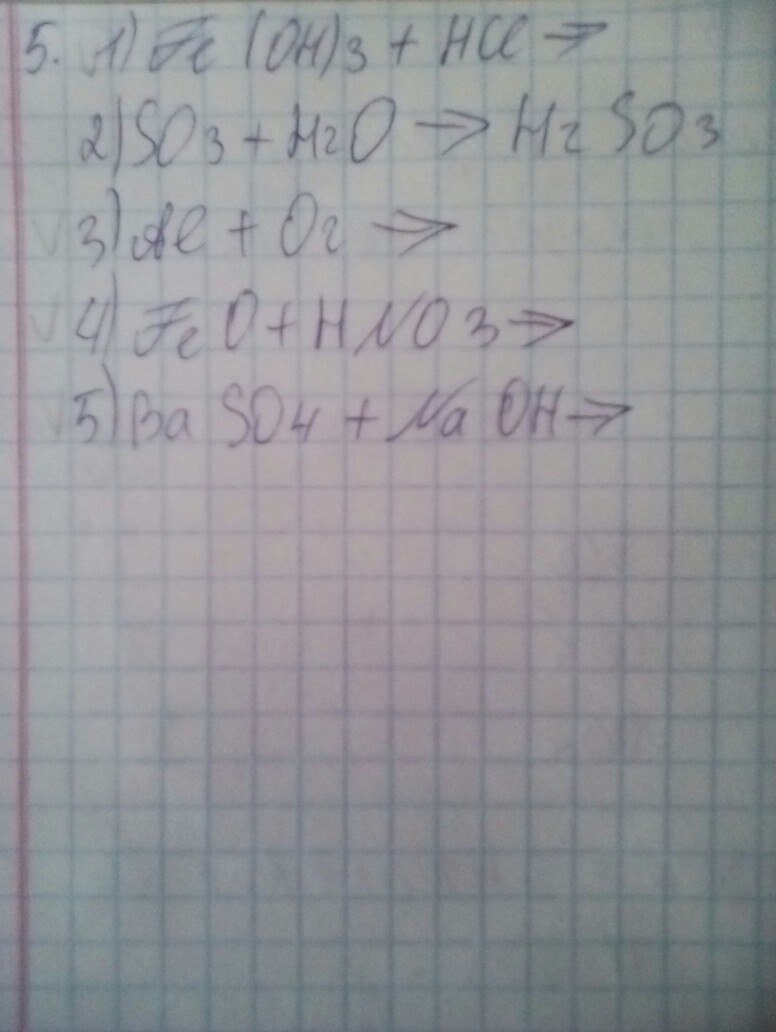 5. 1) Fe (OH)3 + HCl →
2) SO3 + H2O → H2 SO3
3) Al + O2 →
4) Fe O + H NO3 →
5) Ba SO4 + Na OH →